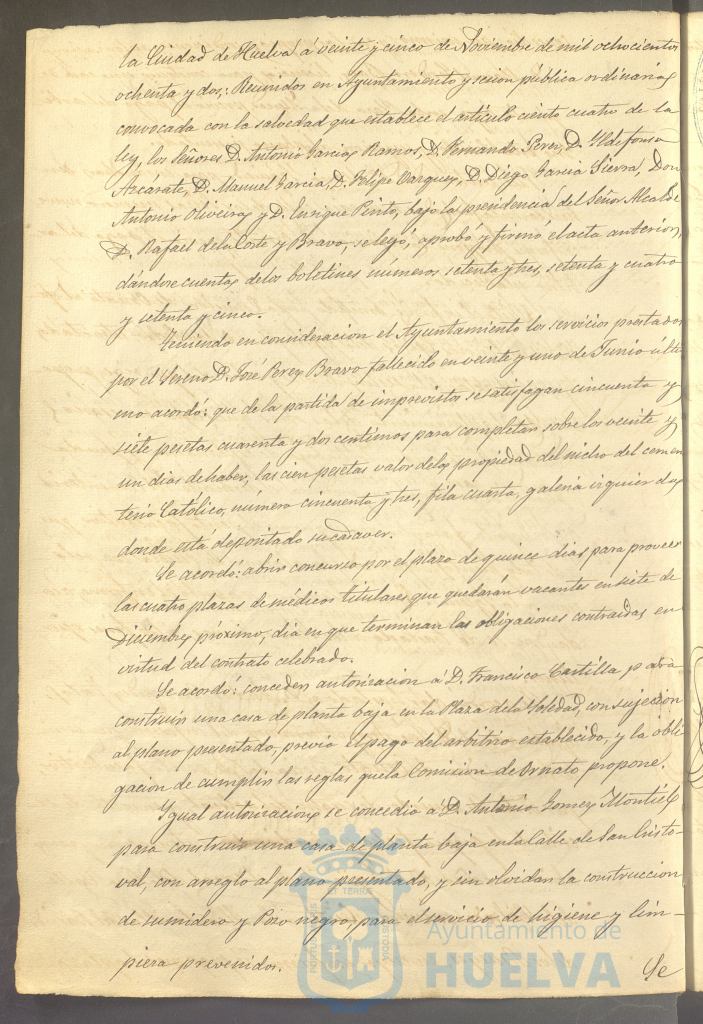 la Ciudad de Huelva á veinte y cinco de Noviembre de mil ochocientos
ochenta y dos,: Reunidos en Ayuntamiento y sesion pública ordinaria,
convocada con la salvedad que establece el artículo ciento cuatro de la
ley, los Señores D. Antonio Garcia Ramos, D. Fernando Perez, D. Ildefonso
Azcárate, D. Manuel Garcia, D. Felipe Vazquez, D. Diego Garcia Sierra, Don
Antonio Oliveira y D. Enrique Pinto, bajo la presidencia del Señor Alcalde
D. Rafael de la Corte y Bravo, se leyó, aprobó y firmó el acta anterior,
dándose cuenta de los boletines números setenta y tres, setenta y cuatro
y setenta y cinco.
Teniendo en consideracion el Ayuntamiento los servicios prestados
por el Sereno D. José Perez Bravo fallecido en veinte y uno de Junio últi
mo acordó: que de la partida de imprevistos se satisfagan cincuenta y
siete pesetas cuarenta y dos centimos para completar sobre los veinte y
un dias de haber, las cien pesetas valor de la propiedad del nicho del cemen
terio Católico, número cincuenta y tres, fila cuarta, galeria izquierda,
donde está depositado su cadaver.
Se acordó: abrir concurso por el plazo de quince dias para proveer
las cuatro plazas de médicos titulares que quedarán vacantes en siete de
Diciembre próximo, dia en que terminan las obligaciones contraidas en
virtud del contrato celebrado.
Se acordó: conceder autorizacion á D. Francisco Castilla para
construir una casa de planta baja en la Plaza de la Soledad, con sujecion
al plano presentado, previo el pago del arbitrio establecido, y la obli
gacion de cumplir las reglas que la Comision de Ornato propone.
Ygual autorizacion se concedió á D. Antonio Gomez Montiel
para construir una casa de planta baja en la Calle de San Cristo-
val, con arreglo al plano presentado, y sin olvidar la construccion
de sumidero y Pozo negro, para el servicio de higiene y lim-
pieza prevenidos.
Se
Ayuntamiento de
HUELVA